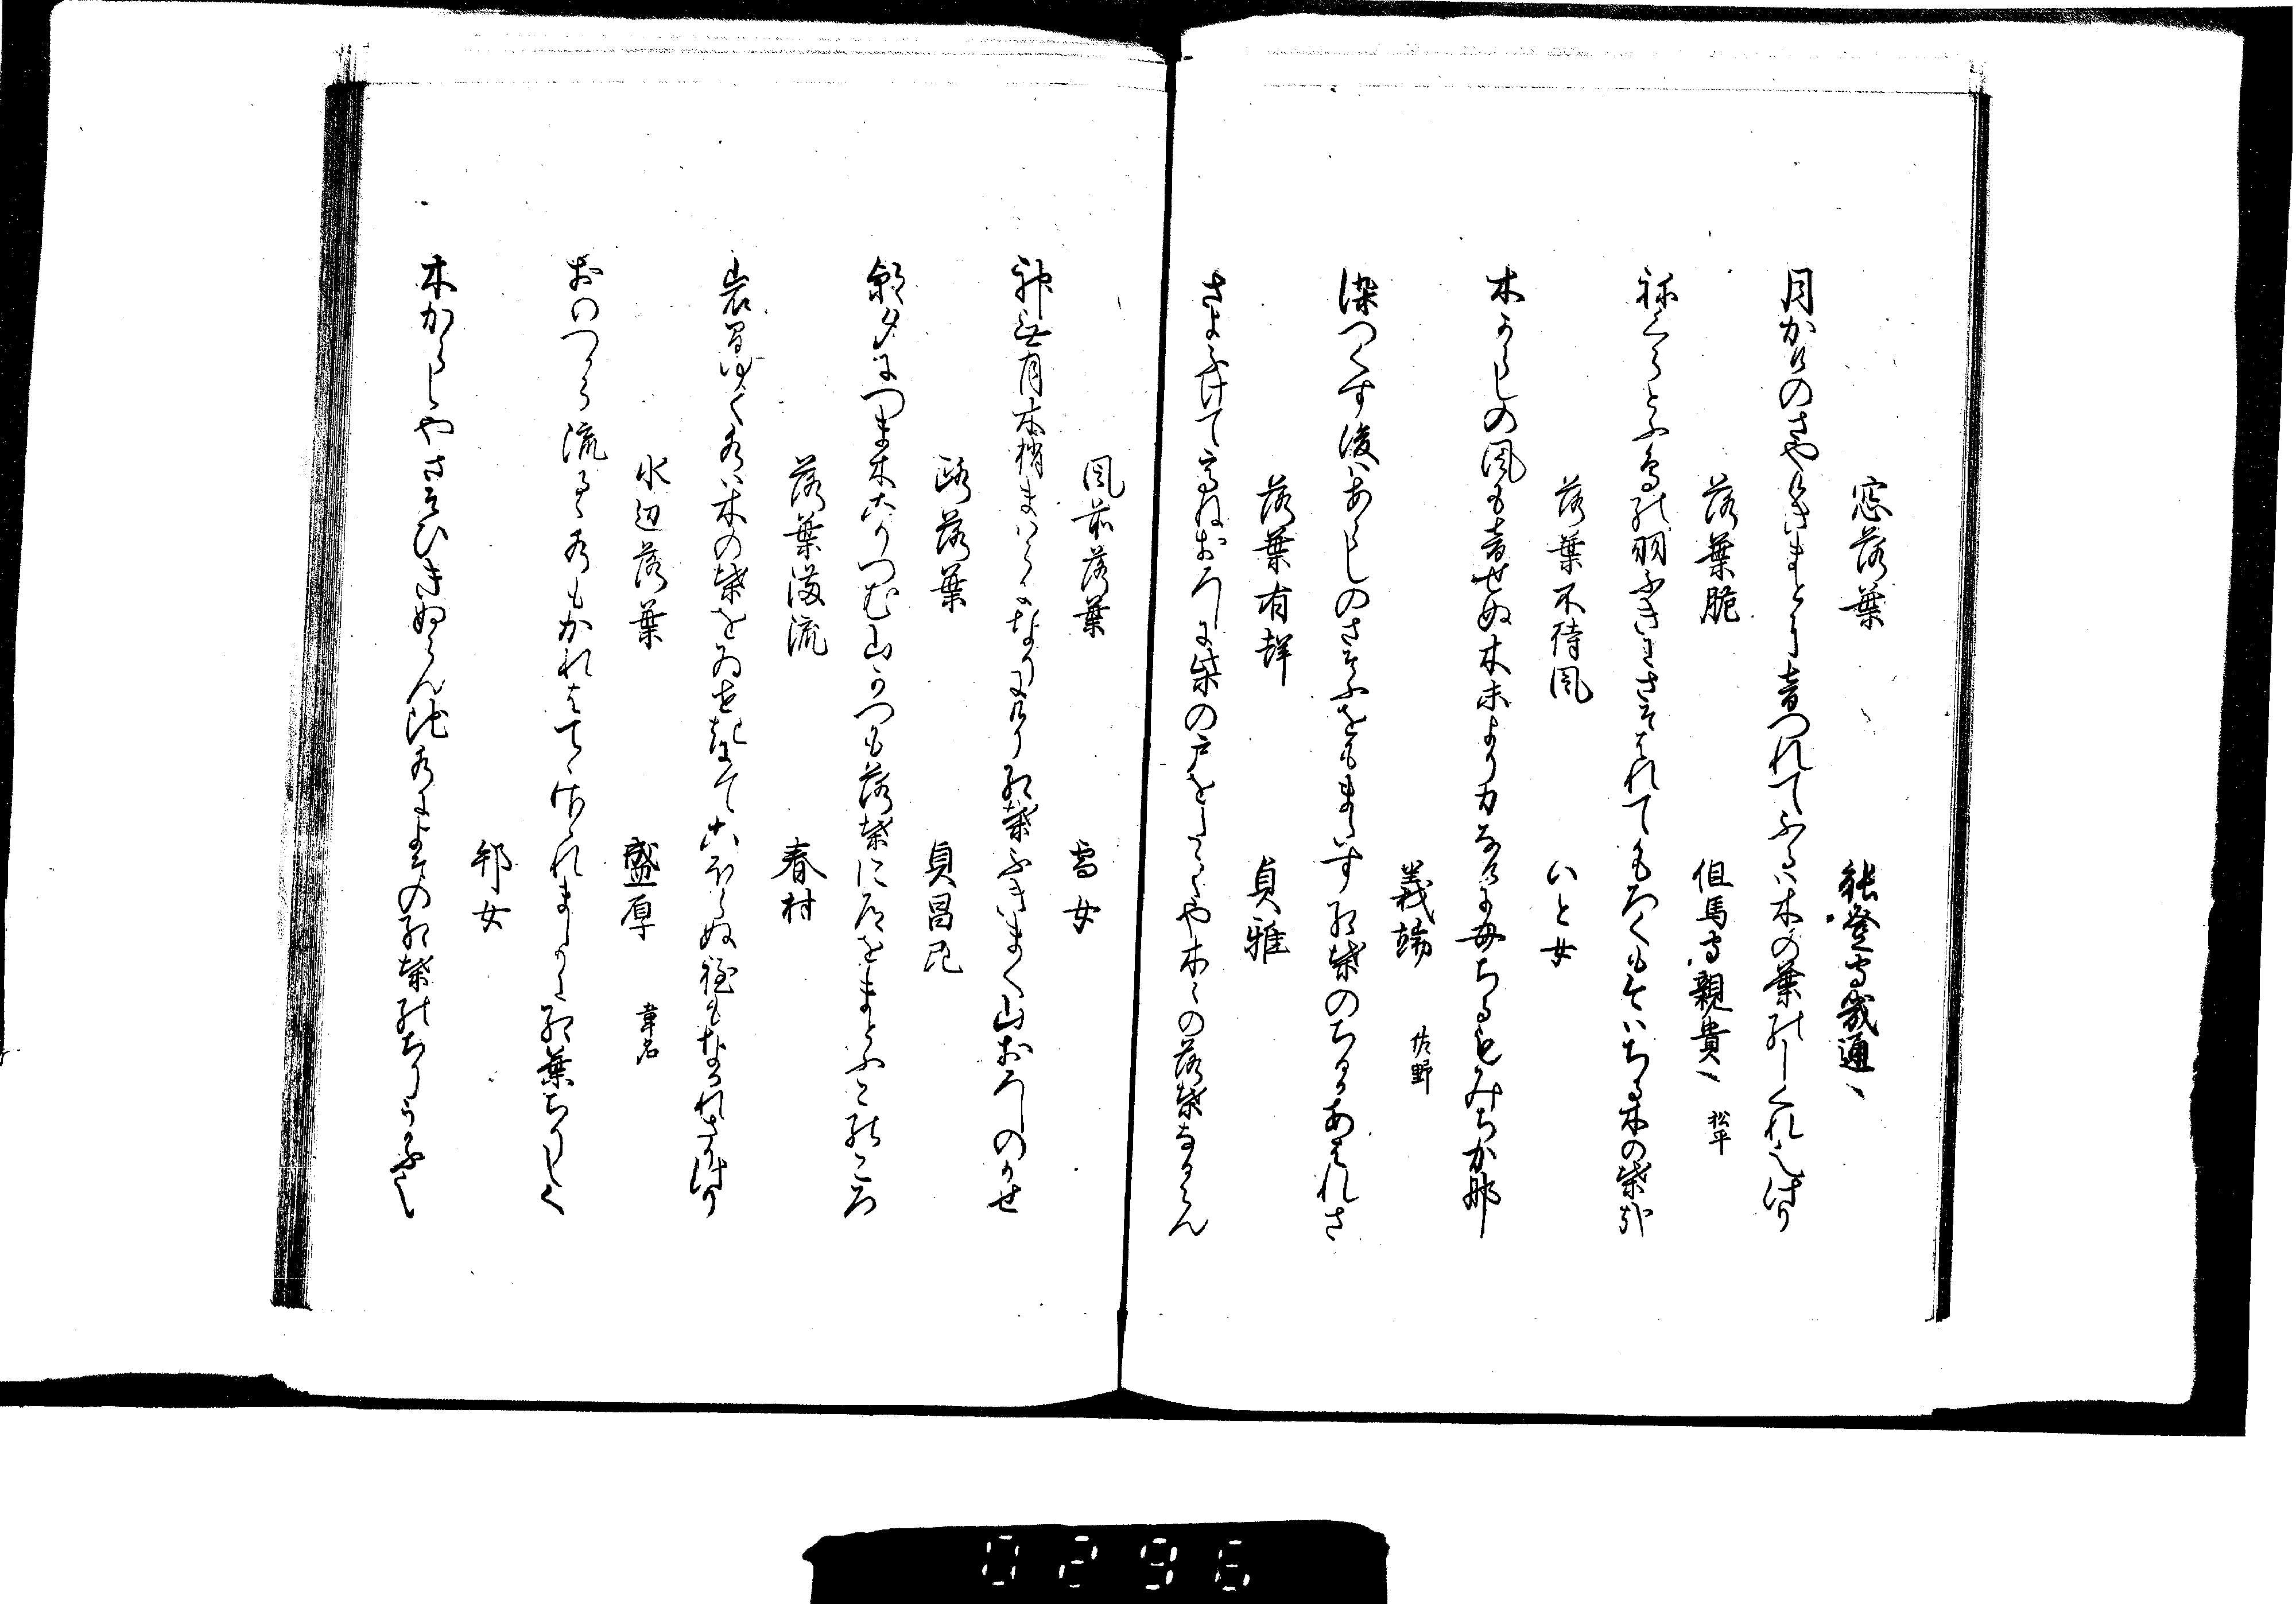 窓落葉　能登守歳通
月かけのさやけきまとに音つれてふるは木の葉のしくれ也けり
落葉脆　但馬守親貴　松平
ねくらとふ鳥の羽ふきにさそはれてもろくもそゝちる木の葉哉
落葉不待風　いと女
木からしの風も音せぬ木末より力なけにもちるもみちか那
義端　佐野
染つくす後はあらしのさそふをもまたす紅葉のちるあはれさ
落葉有声　貞雅
さよふけて高ねおろしに柴の戸をたゝくや木々の落葉なるらん
風前落葉　雪女
神無月木梢まはらになりにけり紅葉ふきまく山おろしのかせ
路落葉　貞昌
朝夕につま木こりつむ山かつも落葉に道をまとふころ
落葉満流　春村
岩間ゆく水は木の葉を
水辺落葉　盛厚　葦名
おのつから流るゝ水もかれはてゝ
邦女
木からしやさそひきぬらん池水によその紅葉のちりうかふ
0296